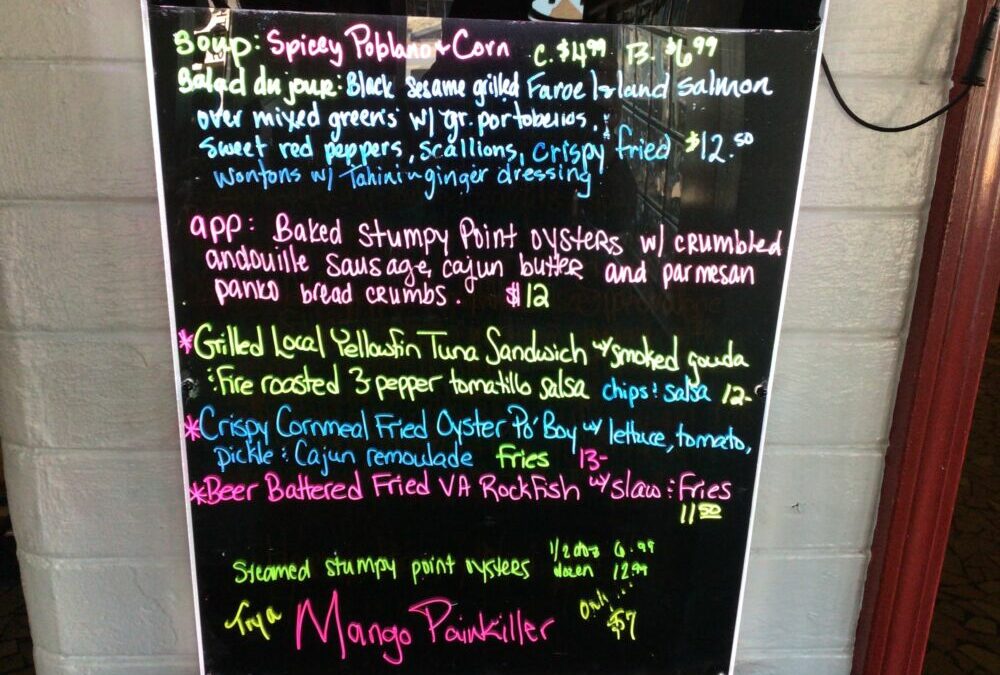 Soup: Spicey Poblano & Corn C. $4.99 B. $6.99
Salad du jour: Black sesame grilled Faroe Island salmon
over mixed greens w/ gr. portobellos,
Sweet red peppers, scallions, crispy fried $12.50
wontons w/ Tahini-ginger dressing
app: Baked Stumpy Point oysters w/ crumbled
andouille sausage, cajun butter and parmesan
panko bread crumbs. $12
*Grilled Local Yellowfin Tuna Sandwich w/ smoked gouda
& Fire roasted 3 pepper tomatillo salsa chips & salsa 12-
*Crispy Cornmeal Fried Oyster Po'Boy w/ lettuce, tomato,
pickle & Cajun remoulade fries 13-
*Beer Battered Fried VA Rockfish w/ slaw & Fries
11.50
Steamed stumpy point oysters 1/2 doz 6.99
dozen 12.99
Try a Mango Painkiller Only... $7